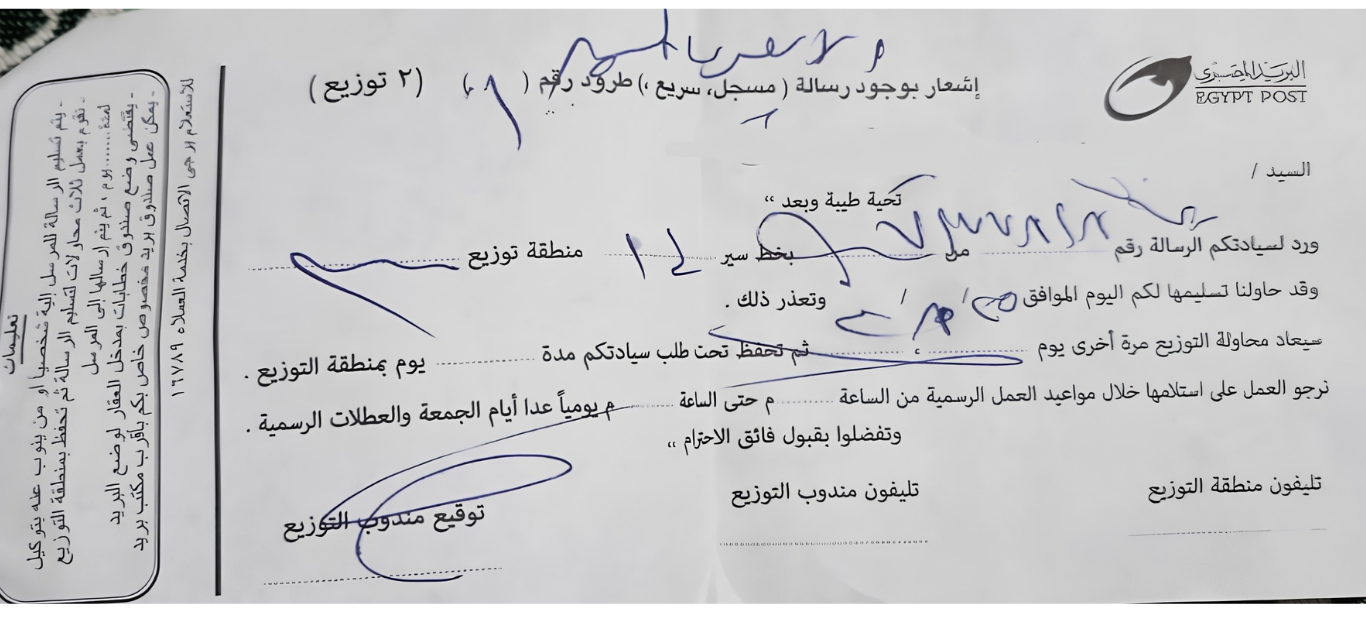 البريد المصري
EGYPT POST
إشعار بوجود رسالة ( مسجل، سريع ،) طرود رقم ( ) (٢ توزيع )
السيد /
تحية طيبة وبعد ،،
ورد لسيادتكم الرسالة رقم من بخط سير منطقة توزيع
وقد حاولنا تسليمها لكم اليوم الموافق / / وتعذر ذلك .
سيعاد محاولة التوزيع مرة أخرى يوم ، ثم تحفظ تحت طلب سيادتكم مدة يوم بمنطقة التوزيع .
نرجو العمل على استلامها خلال مواعيد العمل الرسمية من الساعة م حتى الساعة م يومياً عدا أيام الجمعة والعطلات الرسمية .
وتفضلوا بقبول فائق الاحترام ،،
تليفون منطقة التوزيع
تليفون مندوب التوزيع
توقيع مندوب التوزيع
للاستعلام يرجى الاتصال بخدمة العملاء ١٦٧٨٩
تعليمات
- يتم تسليم الرسالة للمرسل إليه شخصيا او من ينوب عنه بتوكيل
- نقوم بعمل ثلاث محاولات لتسليم الرسالة ثم تحفظ بمنطقة التوزيع
لمدة........ يوم ، ثم يتم إرسالها إلى المرسل
- يقتضى وضع صندوق خطابات بمدخل العقار لوضع البريد
- يمكن عمل صندوق بريد مخصوص خاص بكم بأقرب مكتب بريد